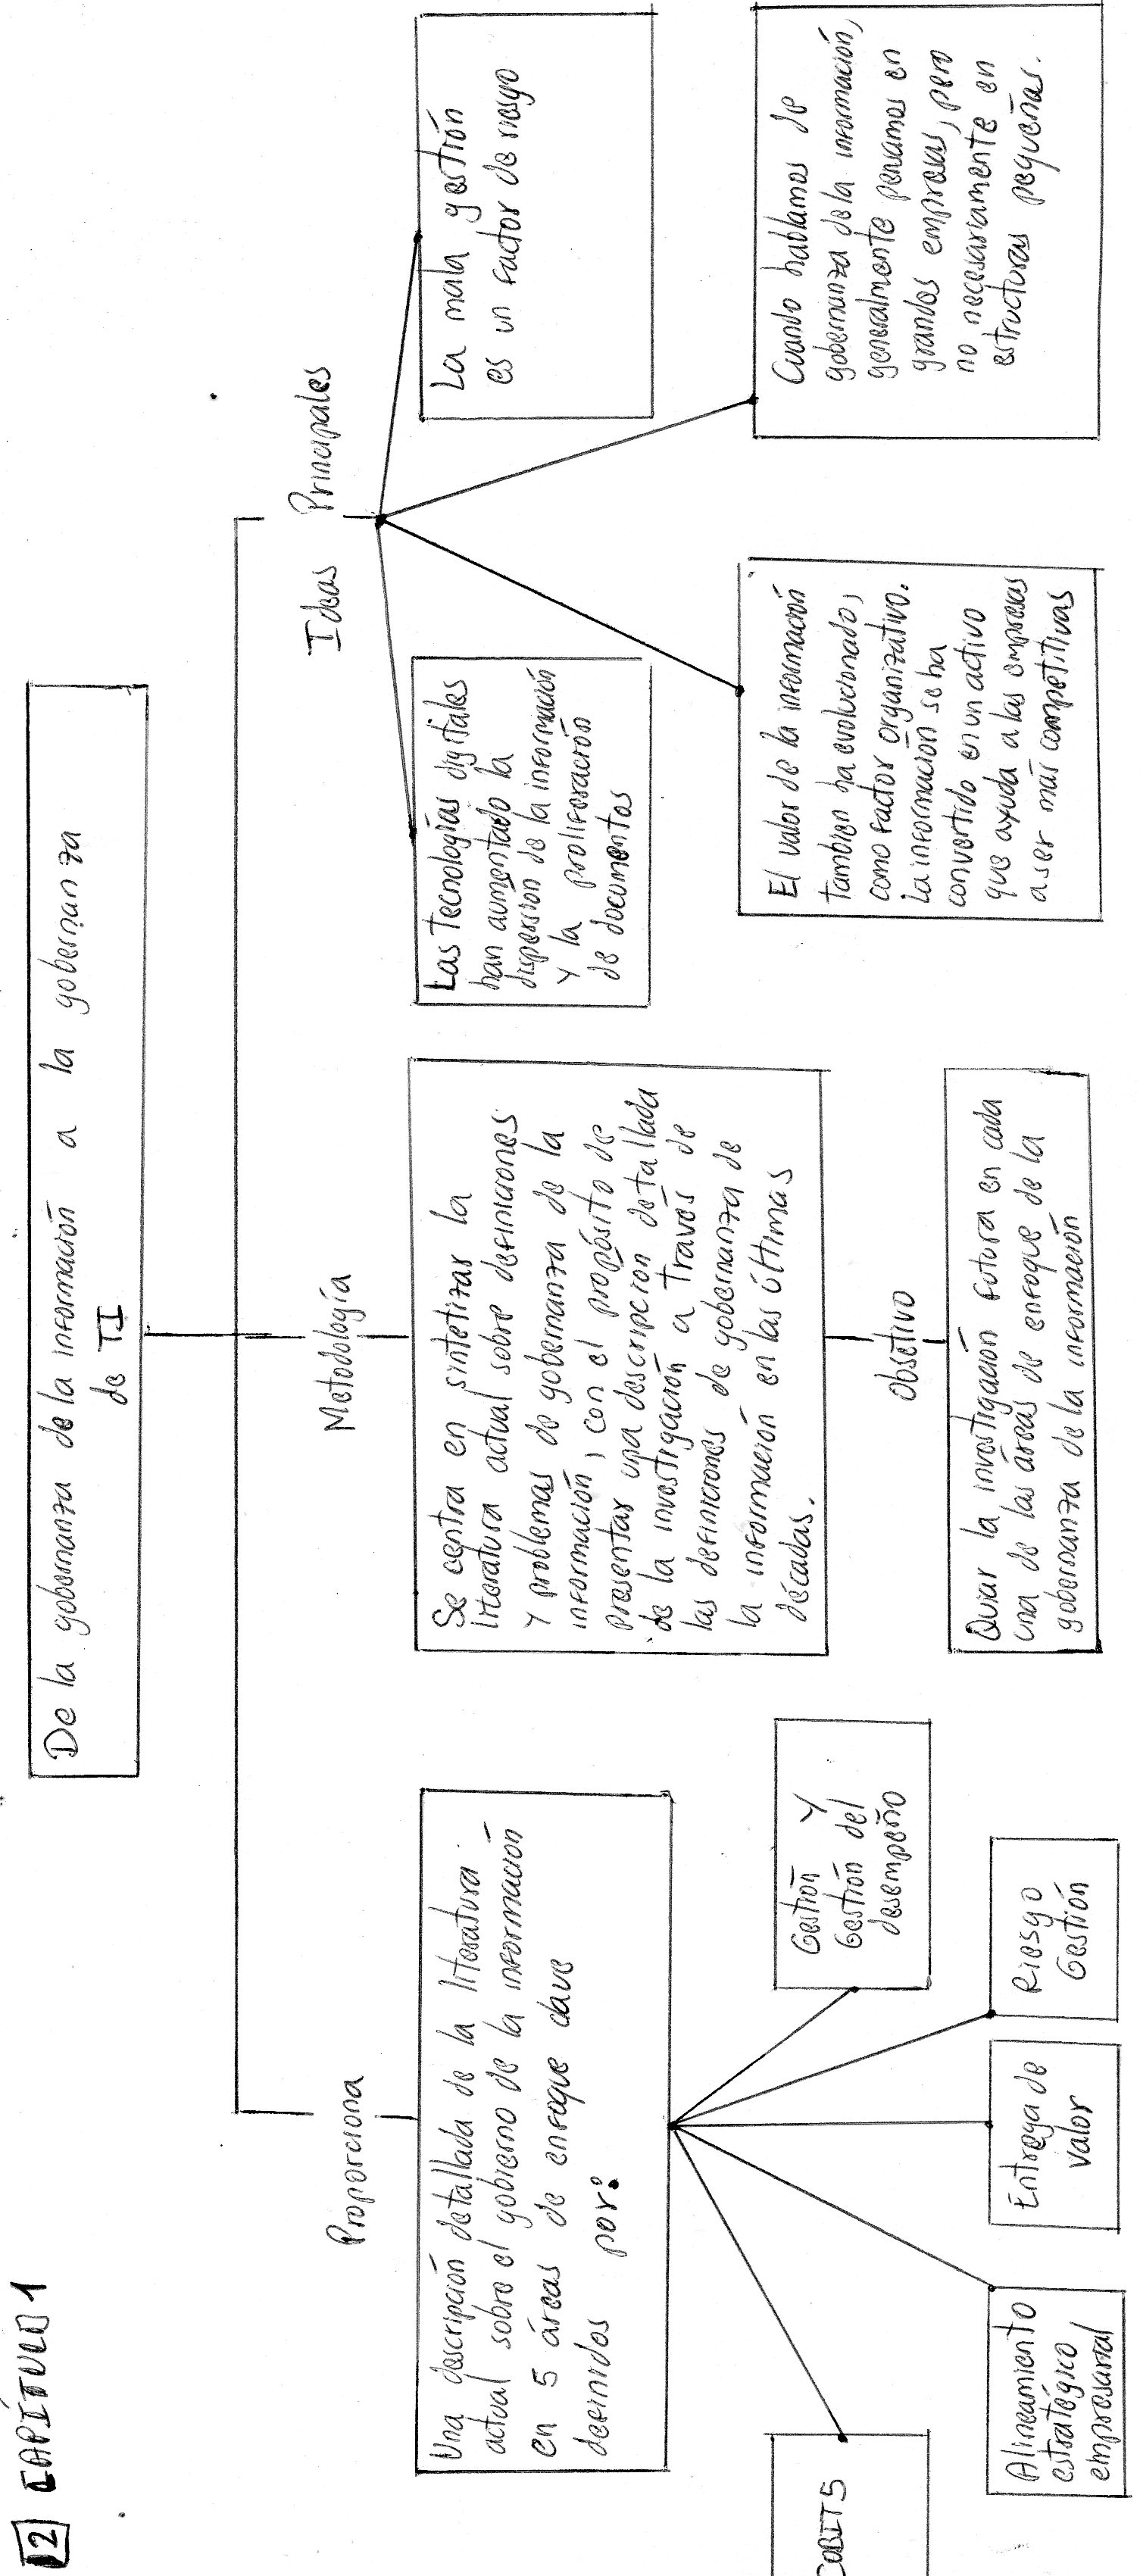 2 CAPÍTULO 1
De la gobernanza de la información a la gobernanza
de TI
Proporciona
Una descripción detallada de la literatura
actual sobre el gobierno de la información
en 5 áreas de enfoque clave
definidos por:
COBIT5
Alineamiento
estratégico
empresarial
Entrega de
valor
Riesgo
Gestión
Gestión y
Gestión del
desempeño
Metodología
Se centra en sintetizar la
literatura actual sobre definiciones
y problemas de gobernanza de la
información, con el propósito de
presentar una descripción detallada
de la investigación a través de
las definiciones de gobernanza de
la información en las últimas
décadas.
Objetivo
Guiar la investigación futura en cada
una de las áreas de enfoque de la
gobernanza de la información
Ideas Principales
Las tecnologías digitales
han aumentado la
dispersión de la información
y la proliferación
de documentos
El valor de la información
también ha evolucionado,
como factor organizativo.
La información se ha
convertido en un activo
que ayuda a las empresas
a ser más competitivas
Cuando hablamos de
gobernanza de la información,
generalmente pensamos en
grandes empresas, pero
no necesariamente en
estructuras pequeñas.
La mala gestión
es un factor de riesgo